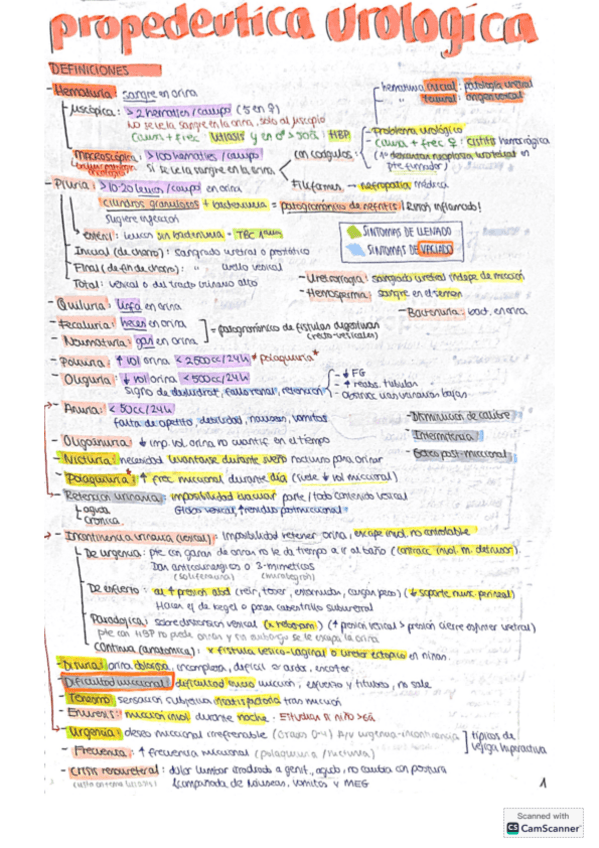 propedeutica urologica
DEFINICIONES
- Hematuria: sangre en orina
hematuria inicial: patología uretral
" terminal: origen vesical
- Microscópica: > 2 hematíes / campo (5 en ♀)
NO se ve la sangre en la orina, solo al
Causa + frec: litiasis y en ♂ > 50a: HBP
Macroscópica: > 100 hematíes / campo
Sí se ve la sangre en orina
con coágulos
- Problema urológico
- causa + frec ♀: cistitis hemorrágica
(1º descartar neoplasia urotelial en
pte fumador)
Filiformes → nefropatía médica
- Piuria: > 10-20 leucos / campo en orina
cilindros granulosos + bacteriuria = patognomónico de nefritis ¡Riñón inflamado!
sugiere infección
estéril: leucos sin bacteriuria - TBC
SÍNTOMAS DE LLENADO
SÍNTOMAS DE VACIADO
- Inicial (de chorro): sangrado uretral o prostático
- Final (de fin de chorro): " cuello vesical
Total: vesical o del tracto urinario alto
- Uretrorragia: sangrado uretral indep. de micción
- Hemospermia: sangre en el semen
- Bacteriuria: bact. en orina
- Quiluria: linfa en orina
- Fecaluria: heces en orina
- Neumaturia: gas en orina
- patognomónico de fístulas digestivas
(recto-vesicales)
- Poliuria: ↑ vol orina < 2500cc/24h * polaquiuria *
- Oliguria: ↓ vol orina < 500cc/24h
Signo de deshidrat, fallo renal, retención
- ↓ FG
- ↑ reabs. tubular
- vías urinarias bajas
- Anuria: < 50cc/24h
falta de apetito, debilidad, nauseas, vomitos
- Disminución de calibre
- Oligoanuria ↓ imp. vol. orina no cuantif. en el tiempo
- Intermitencia
- Nicturia: necesidad levantarse durante sueño nocturno para orinar
- Goteo post-miccional
- Polaquiuria: ↑ frec miccional durante día (suele ↓ vol miccional)
- Retención urinaria: imposibilidad evacuar parte / todo contenido vesical
aguda
crónica
Globo vesical, ↑ residuo postmiccional
- Incontinencia urinaria (vesical): imposibilidad retener orina, escape invol. no controlable
De urgencia: pte con ganas de orinar no le da tiempo a ir al baño (contracc invol. m. detrusor)
Dan anticolinérgicos o β-miméticos
(solifenacina)
De esfuerzo: al ↑ presión abd (reir, toser, estornudar, cargar peso) (↓ soporte musc. perineal)
Hacer ej de kegel o poner cabestrillo suburetral
Paradójica: sobredistensión vesical (x rebosam) (↑ presión vesical > presión cierre esfínter uretral)
pte con HBP no puede orinar y sin embargo se le escapa la orina
Continua (anatómica): x fístula vesico-vaginal o uréter ectópico en niñas.
- Disuria: orina dolorosa, incompleta, difícil o ardor, escozor.
- Dificultad miccional: dificultad inicio micción, esfuerzo y titubeo, no sale
- Tenesmo: sensación subjetiva insatisfactoria tras micción
- Enuresis: micción invol. durante noche. Estudiar si niño > 6a
- Urgencia: deseo miccional irrefrenable (Grados 0-4) urgencia-incontinencia
- Frecuencia: ↑ frecuencia miccional (polaquiuria / nicturia)
típicos de
vejiga hiperactiva
- Crisis renoureteral: dolor lumbar irradiado a genit., agudo, no cambia con postura
Acompañada de náuseas, vomitos y MEG
1
Scanned with
CS CamScanner